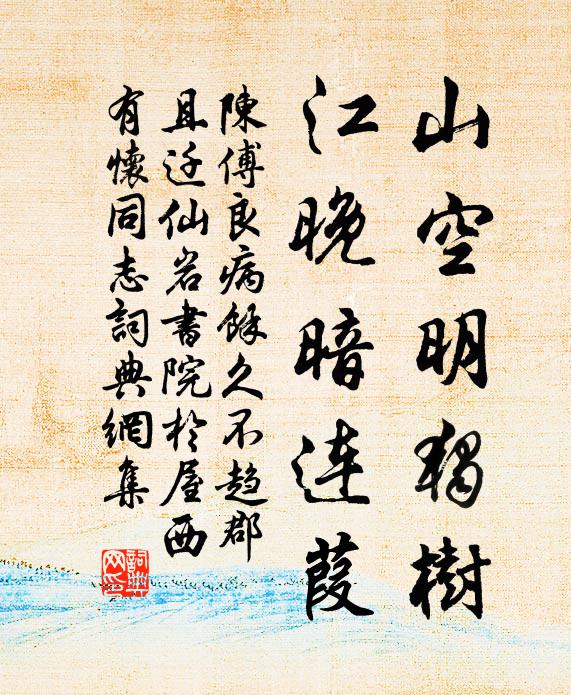 山空明獨樹
江晚暗连葭
陳傅良病餘久不趋郡
且迁仙岩書院於屋西
有懷同志詞典網集
詞典
网印